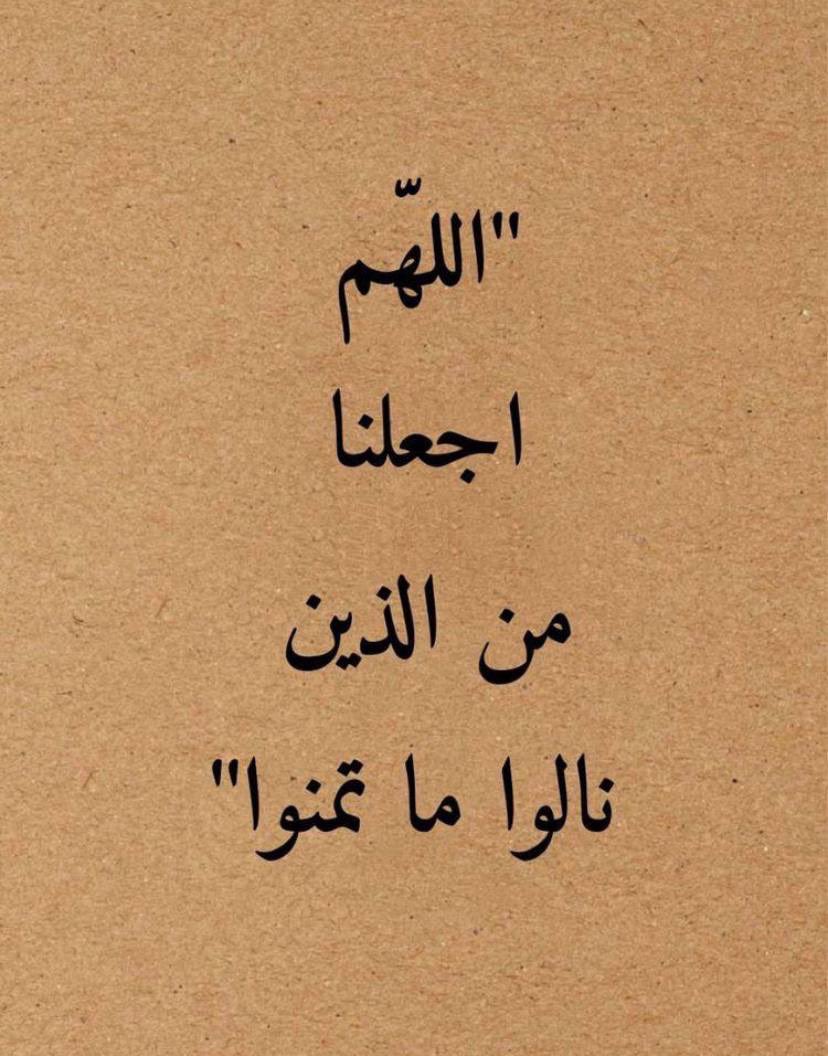 "اللّهم
اجعلنا
من الذين
نالوا ما تمنوا"